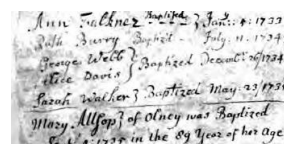 Ann Falkner Baptized } Jan: 4: 1733
Ruth Burry Baptizd - July: 11: 1734
George Webb
Alice Davis } Baptized Decemb: 26 1734
Sarah Walker } Baptized May: 23: 173
Mary Allsop } of Olney was Baptized
1735 in the 89 Year of her Age